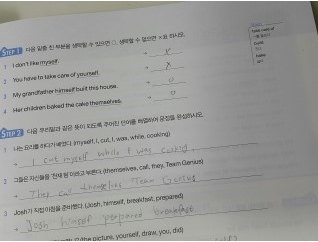 STEP 1 다음 밑줄 친 부분을 생략할 수 있으면 ○, 생략할 수 없으면 ×표 하시오.
1 I don't like myself. → X
2 You have to take care of yourself. → X
3 My grandfather himself built this house. → O
4 Her children baked the cake themselves. → O
take care of
build
bake
STEP 2 다음 우리말과 같은 뜻이 되도록 주어진 단어를 배열하여 문장을 완성하시오.
1 나는 요리를 하다가 베었다. (myself, I, cut, I, was, while, cooking)
→ I cut myself while I was cooking.
2 그들은 자신들을 '천재 팀'이라고 부른다. (themselves, call, they, Team Genius)
→ They call themselves Team Genius
3 Josh가 직접 아침을 준비했다. (Josh, himself, breakfast, prepared)
→ Josh himself prepared breakfast
(the picture, yourself, draw, you, did)